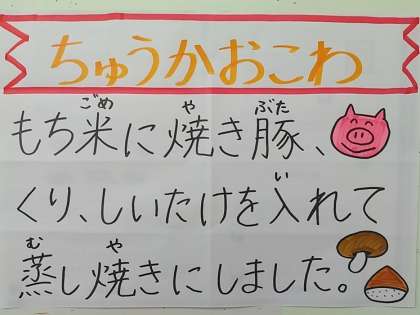 ちゅうかおこわ
ごめ や ぶた
もち米に焼き豚、
い
くり、しいたけを入れて
む や
蒸し焼きにしました。